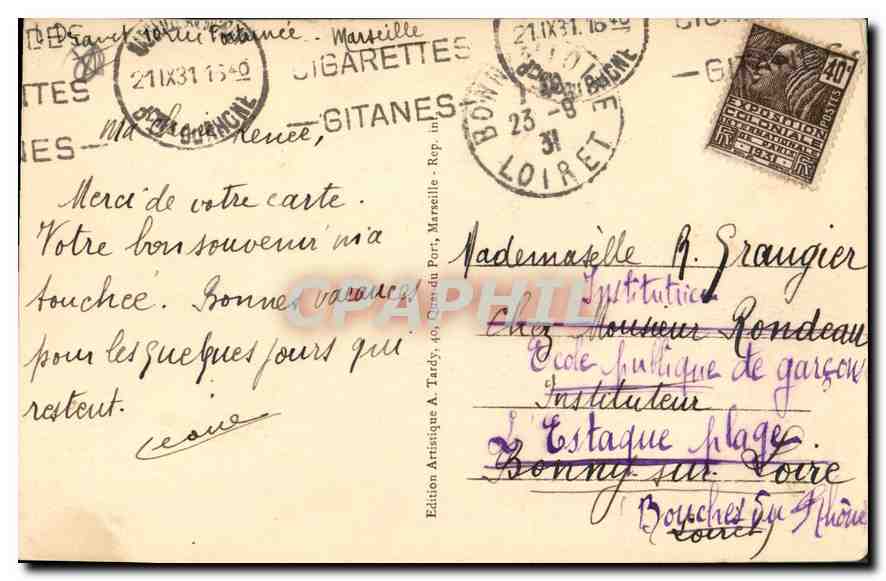 10 rue Fortunée - Marseille
21 IX 31 16 40
CIGARETTES
GITANES
21 IX 31 16 40
CIGARETTES
GITANES
BONNY
23 - 9
31
LOIRET
40c
POSTES
EXPOSITION
COLONIALE
INTERNATIONALE
PARIS
1931
RF
Ma chère Renée,
Merci de votre carte.
Votre bon souvenir m'a
touchée. Bonnes vacances
pour les quelques jours qui
restent.
Edition Artistique A. Tardy, 40, Quai du Port, Marseille - Rep. in
Mademoiselle R. Graugier
Institutrice
Chez Monsieur Rondeau
Ecole publique de garçons
Instituteur
L'Estaque plage
Bonny sur Loire
Bouches du Rhône
(Loiret)
CPAPHIL